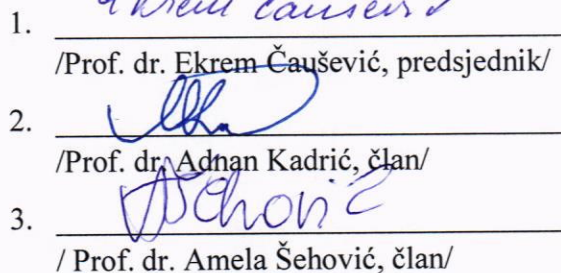 1. Ekrem Čaušević
/Prof. dr. Ekrem Čaušević, predsjednik/
2.
/Prof. dr. Adnan Kadrić, član/
3. AŠehović
/ Prof. dr. Amela Šehović, član/